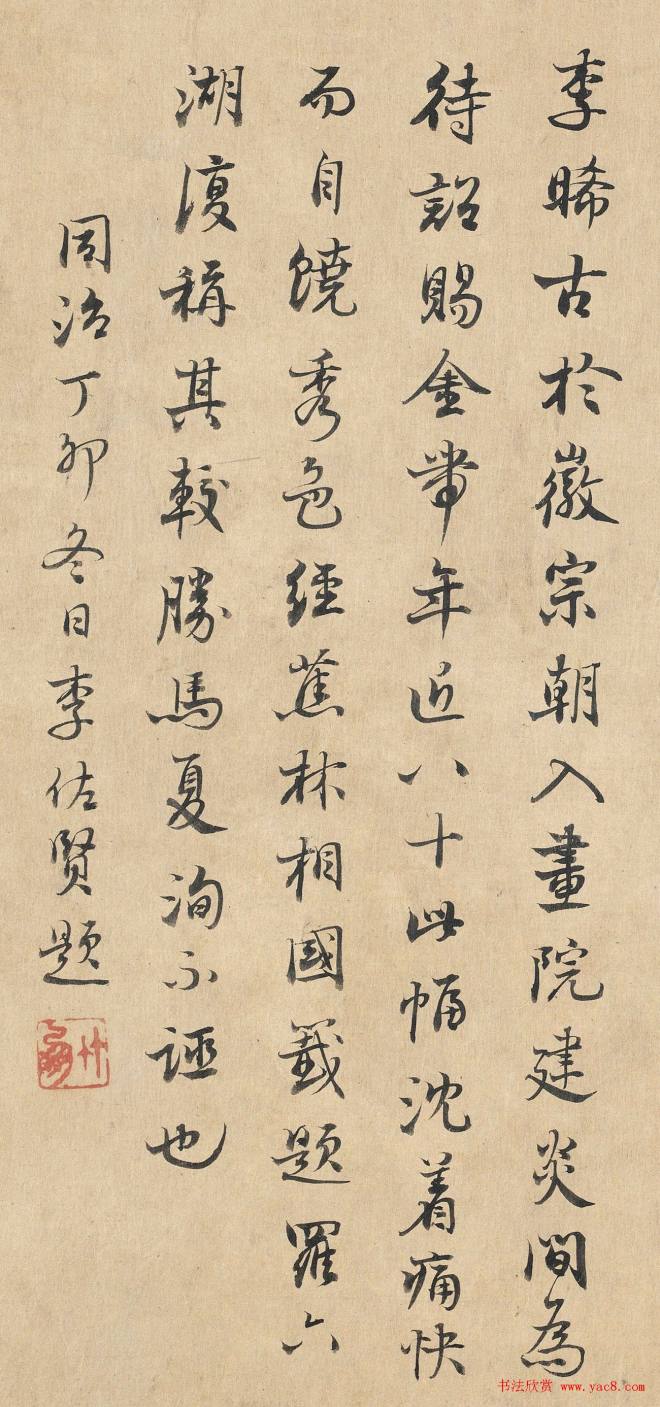 李晞古於徽宗朝入畫院建炎間為
待詔賜金帶年近八十此幅沈着痛快
而自饒秀色經蕉林相國籤題羅六
湖復稱其較勝馬夏洵不誣也
同治丁卯冬日李佐賢題
书法欣赏 www.yac8.com